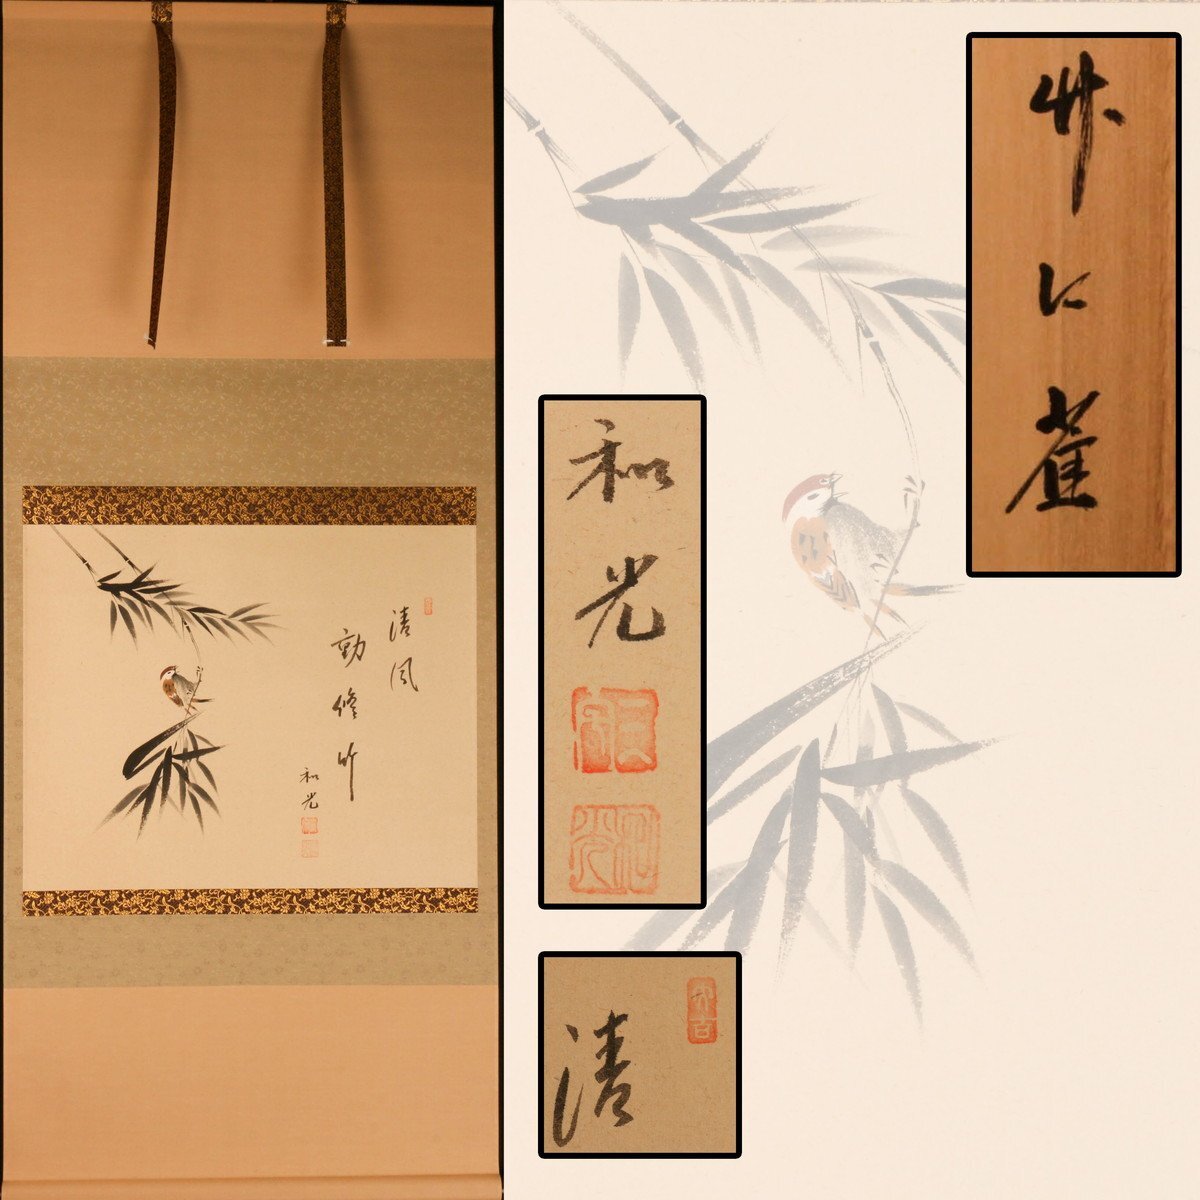 清風
動脩竹
和光
竹に雀
和光
和光
清